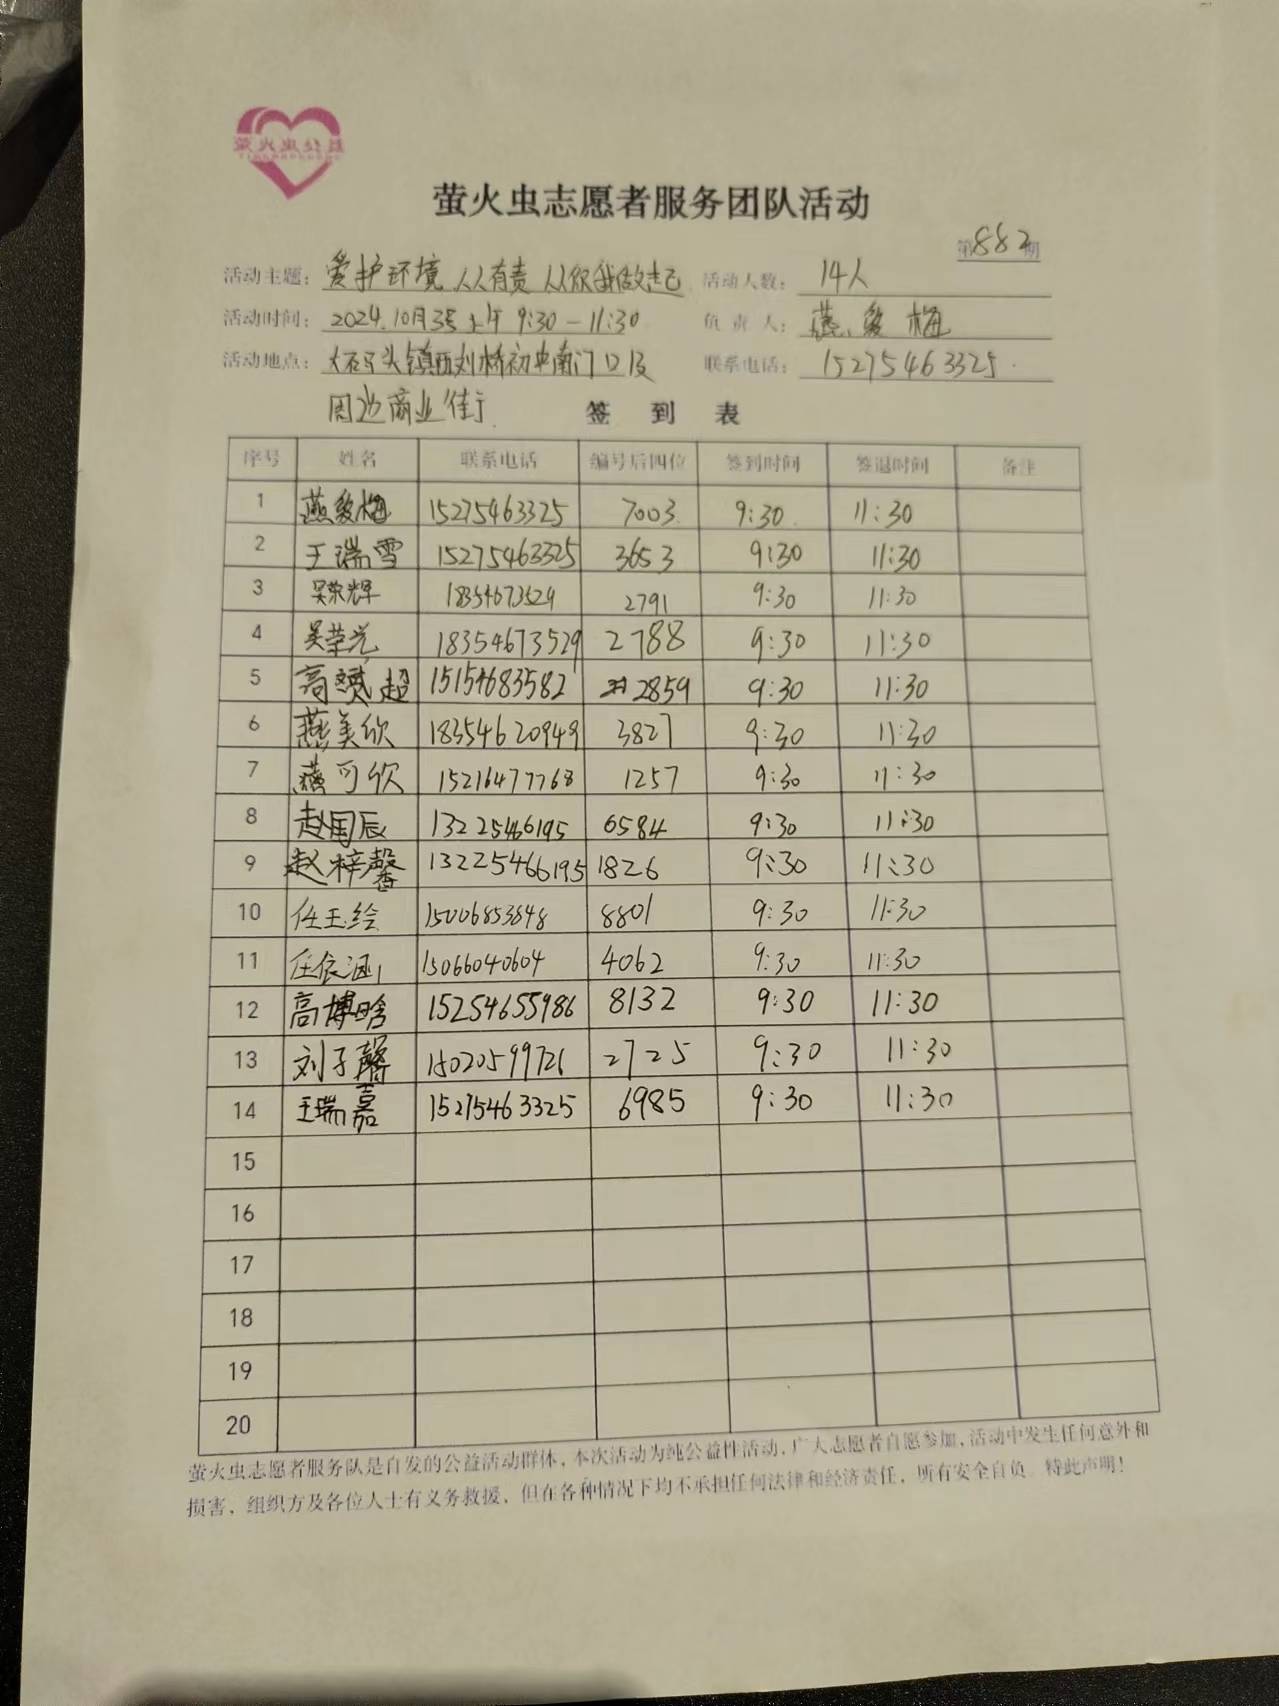 萤火虫志愿者服务团队活动
第882期
活动主题：爱护环境 人人有责 从你我做起 活动人数：14人
活动时间：2024.10月3号上午 9:30-11:30 负责人：燕 梅
活动地点：大码头镇西刘桥初中南门口及 联系电话：15275463325
周边商业街
签到表
序号 姓名 联系电话 编号后四位 签到时间 签退时间 备注
1 燕 梅 15275463325 7003 9:30 11:30
2 王瑞雪 15275463325 3653 9:30 11:30
3 吴荣辉 18354673529 2791 9:30 11:30
4 吴荣光 18354673529 2788 9:30 11:30
5 高 超 15154683582 2859 9:30 11:30
6 燕美欣 18354620949 3827 9:30 11:30
7 燕可欣 15216477768 1257 9:30 11:30
8 赵国辰 13225466195 6584 9:30 11:30
9 赵梓馨 13225466195 1826 9:30 11:30
10 任玉绘 15006853848 8801 9:30 11:30
11 任依涵 15066040604 4062 9:30 11:30
12 高博晗 15254655986 8132 9:30 11:30
13 刘子馨 15020599726 2725 9:30 11:30
14 王瑞嘉 15275463325 6985 9:30 11:30
15
16
17
18
19
20
萤火虫志愿者服务队是自发的公益活动群体，本次活动为纯公益性活动，广大志愿者自愿参加，活动中发生任何意外和
损害，组织方及各位人士有义务救援，但在各种情况下均不承担任何法律和经济责任，所有安全自负。特此声明！